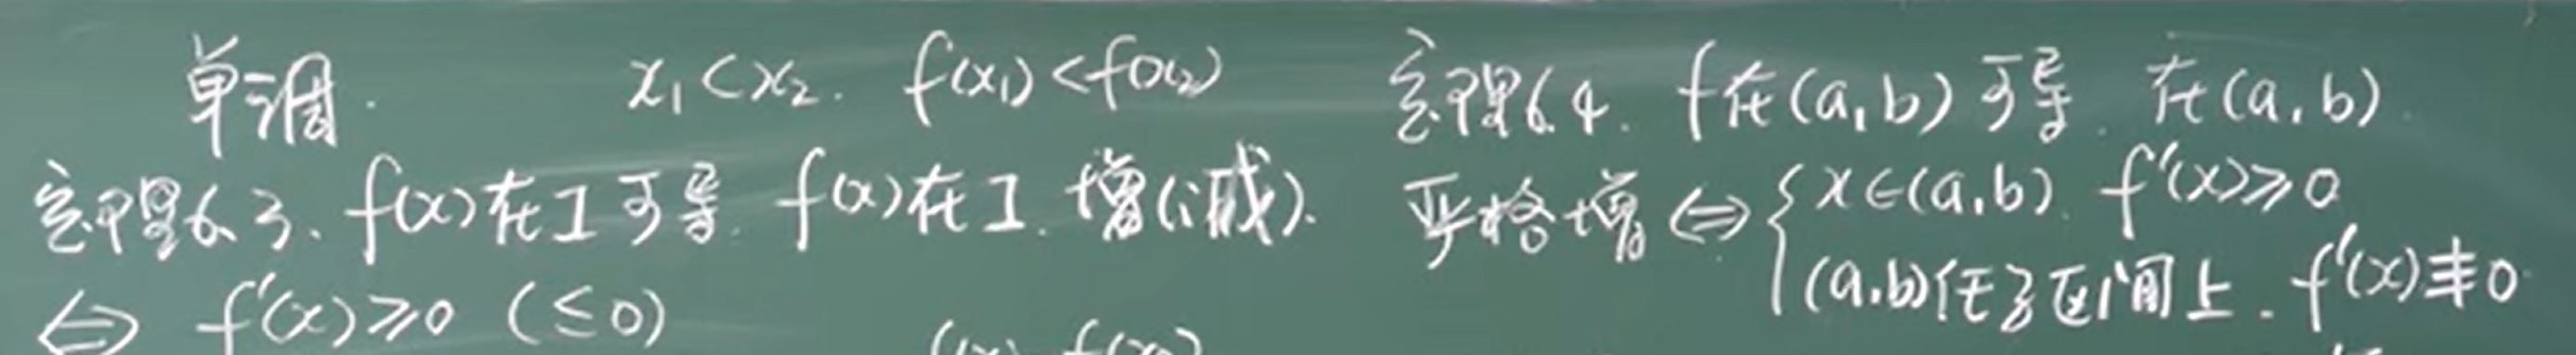 单调. x₁<x₂. f(x₁)<f(x₂)
定理6.3. f(x)在I可导. f(x)在I. 增(减).
⇔ f'(x)≥0 (≤0)
定理6.4. f在(a,b)可导. 在(a,b).
严格增⇔{x∈(a,b). f'(x)≥0
(a,b)任子区间上. f'(x)≢0